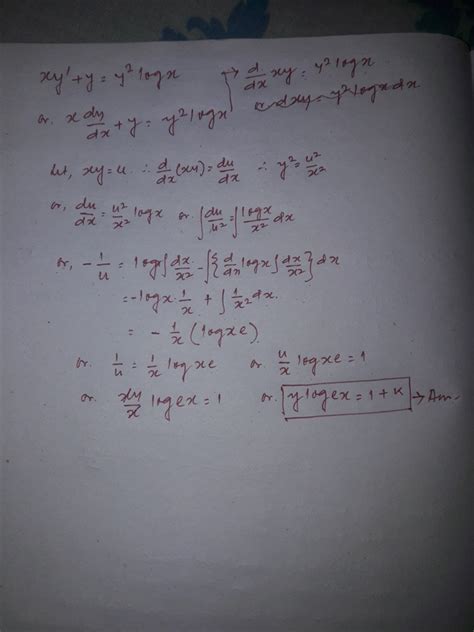 xy' + y = y² log x → d/dx xy = y² log x
or, x dy/dx + y = y² log x or dxy = y² log x dx
Let, xy = u ∴ d/dx (xy) = du/dx ∴ y² = u²/x²
or, du/dx = u²/x² log x or ∫ du/u² = ∫ log x/x² dx
or, - 1/u = log x ∫ dx/x² - ∫ { d/dx log x ∫ dx/x² } dx
= - log x · 1/x + ∫ 1/x² dx
= - 1/x (log xe)
or 1/u = 1/x log xe or u/x log xe = 1
or xy/x log ex = 1 or y log ex = 1 + K → Am.